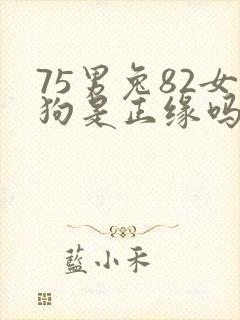 75男兔82女
狗是正缘吗
蓝小禾